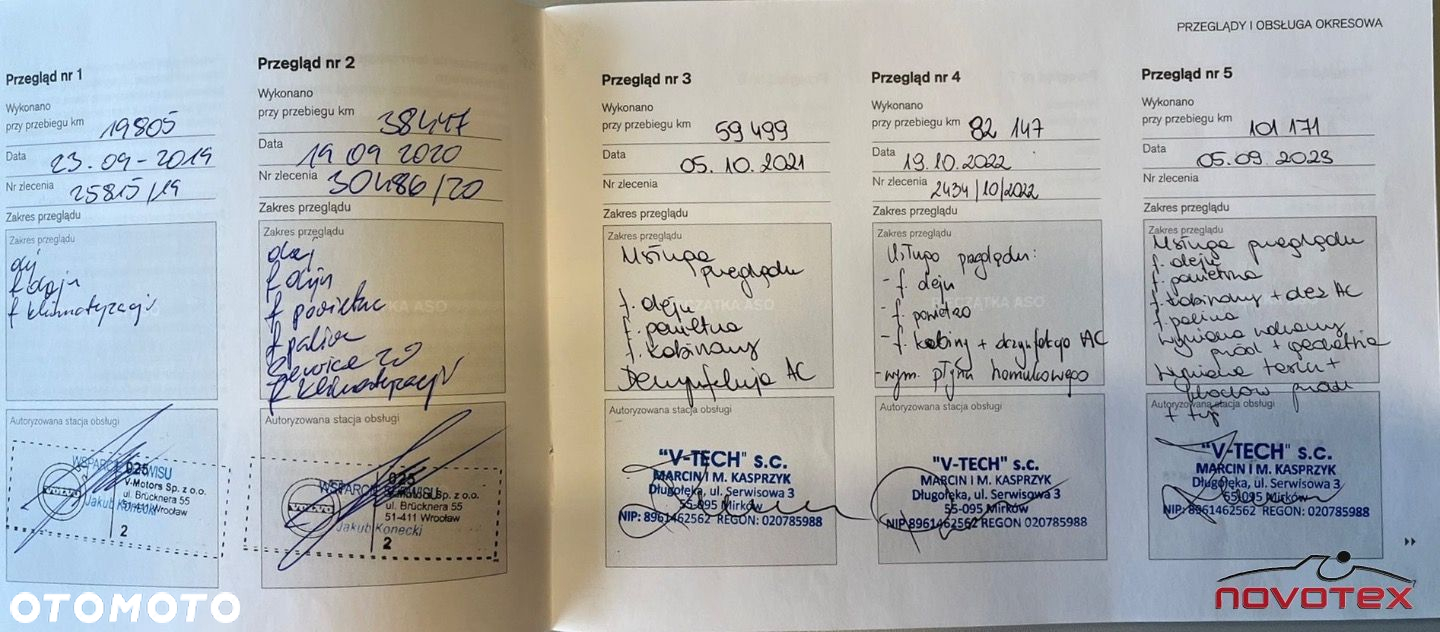 PRZEGLĄDY I OBSŁUGA OKRESOWA
Przegląd nr 1
Wykonano
przy przebiegu km 19805
Data 23.09-2019
Nr zlecenia 25815/19
Zakres przeglądu
Zakres przeglądu
olej
f oleju
f klimatyzacji
WSPARCIE SERWISU
025
V-Motors Sp. z o.o.
ul. Brücknera 55
Wrocław
Jakub Konecki
2
Przegląd nr 2
Wykonano
przy przebiegu km 38447
Data 19 09 2020
Nr zlecenia 30486/20
Zakres przeglądu
Zakres przeglądu
olej
f oleju
f powietrza
f paliwa
Service 20
f klimatyzacji
Autoryzowana stacja obsługi
WSPARCIE SERWISU
025
V-Motors Sp. z o.o.
ul. Brücknera 55
51-411 Wrocław
Jakub Konecki
2
Przegląd nr 3
Wykonano
przy przebiegu km 59 499
Data 05.10.2021
Nr zlecenia
Zakres przeglądu
Zakres przeglądu
Usługa
przeglądu
f. oleju
f. powietrza
f. kabinowy
Dezynfekcja AC
Autoryzowana stacja obsługi
"V-TECH" s.c.
MARCIN I M. KASPRZYK
Długołęka, ul. Serwisowa 3
55-095 Mirków
NIP: 8961462562 REGON: 020785988
Przegląd nr 4
Wykonano
przy przebiegu km 82 147
Data 19.10.2022
Nr zlecenia 2434/10/2022
Zakres przeglądu
Zakres przeglądu
PIECZĄTKA ASO
Usługa przeglądu:
- f. oleju
- f. powietrza
- f. kabiny + dezynfekcja AC
- wym. płynu hamulcowego
Autoryzowana stacja obsługi
"V-TECH" s.c.
MARCIN I M. KASPRZYK
Długołęka, ul. Serwisowa 3
55-095 Mirków
NIP: 8961462562 REGON: 020785988
Przegląd nr 5
Wykonano
przy przebiegu km 101 171
Data 05.09.2023
Nr zlecenia
Zakres przeglądu
Zakres przeglądu
Usługa przeglądu
f. oleju
f. powietrza
f. kabinowy + dez AC
f. paliwa
wymiana
przód + geometria
wymiana tarcz +
klocków przód
+ tył
Autoryzowana stacja obsługi
"V-TECH" s.c.
MARCIN I M. KASPRZYK
Długołęka, ul. Serwisowa 3
55-095 Mirków
NIP: 8961462562 REGON: 020785988
OTOMOTO
NOVOTEX